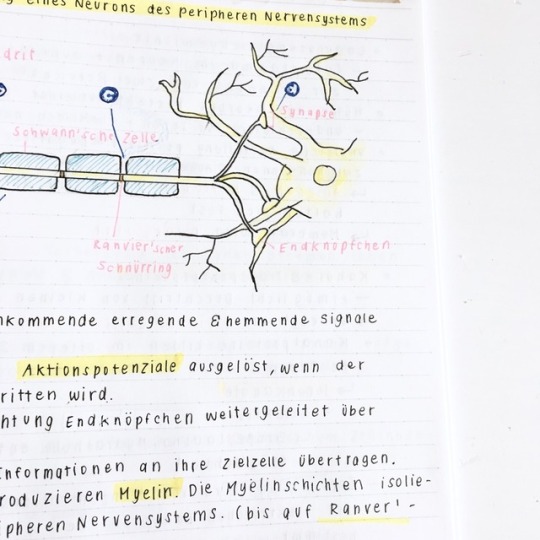 eines Neurons des peripheren Nervensystems
drit
c
d
Synapse
Schwann'sche Zelle
Ranvier'scher
Schnürring
Endknöpfchen
nkommende erregende & hemmende Signale
Aktionspotenziale ausgelöst, wenn der
ritten wird.
htung Endknöpfchen weitergeleitet über
Informationen an ihre Zielzelle übertragen.
roduzieren Myelin. Die Myelinschichten isolie-
ipheren Nervensystems. (bis auf Ranver'-